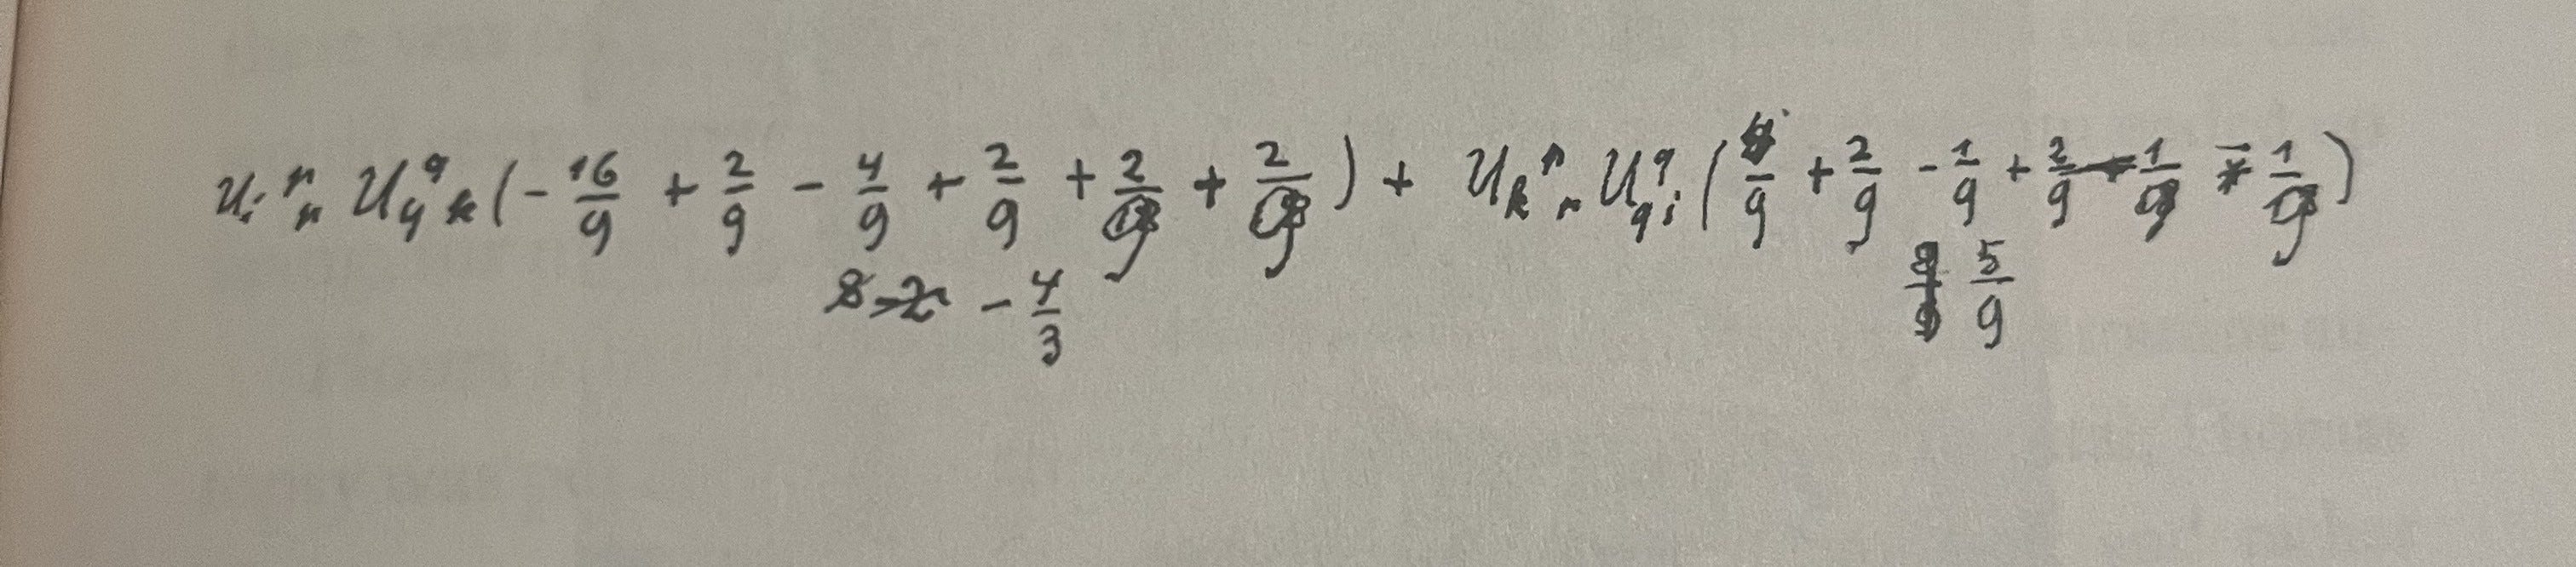 U_i^n_n U_q^q_k (- 16/9 + 2/9 - 4/9 + 2/9 + 2/9 + 2/9) + U_k^n_n U^q_{qi} ( /9 + 2/9 - 1/9 + 2/9 - 1/9 - 1/9)
- 4/3 5/9